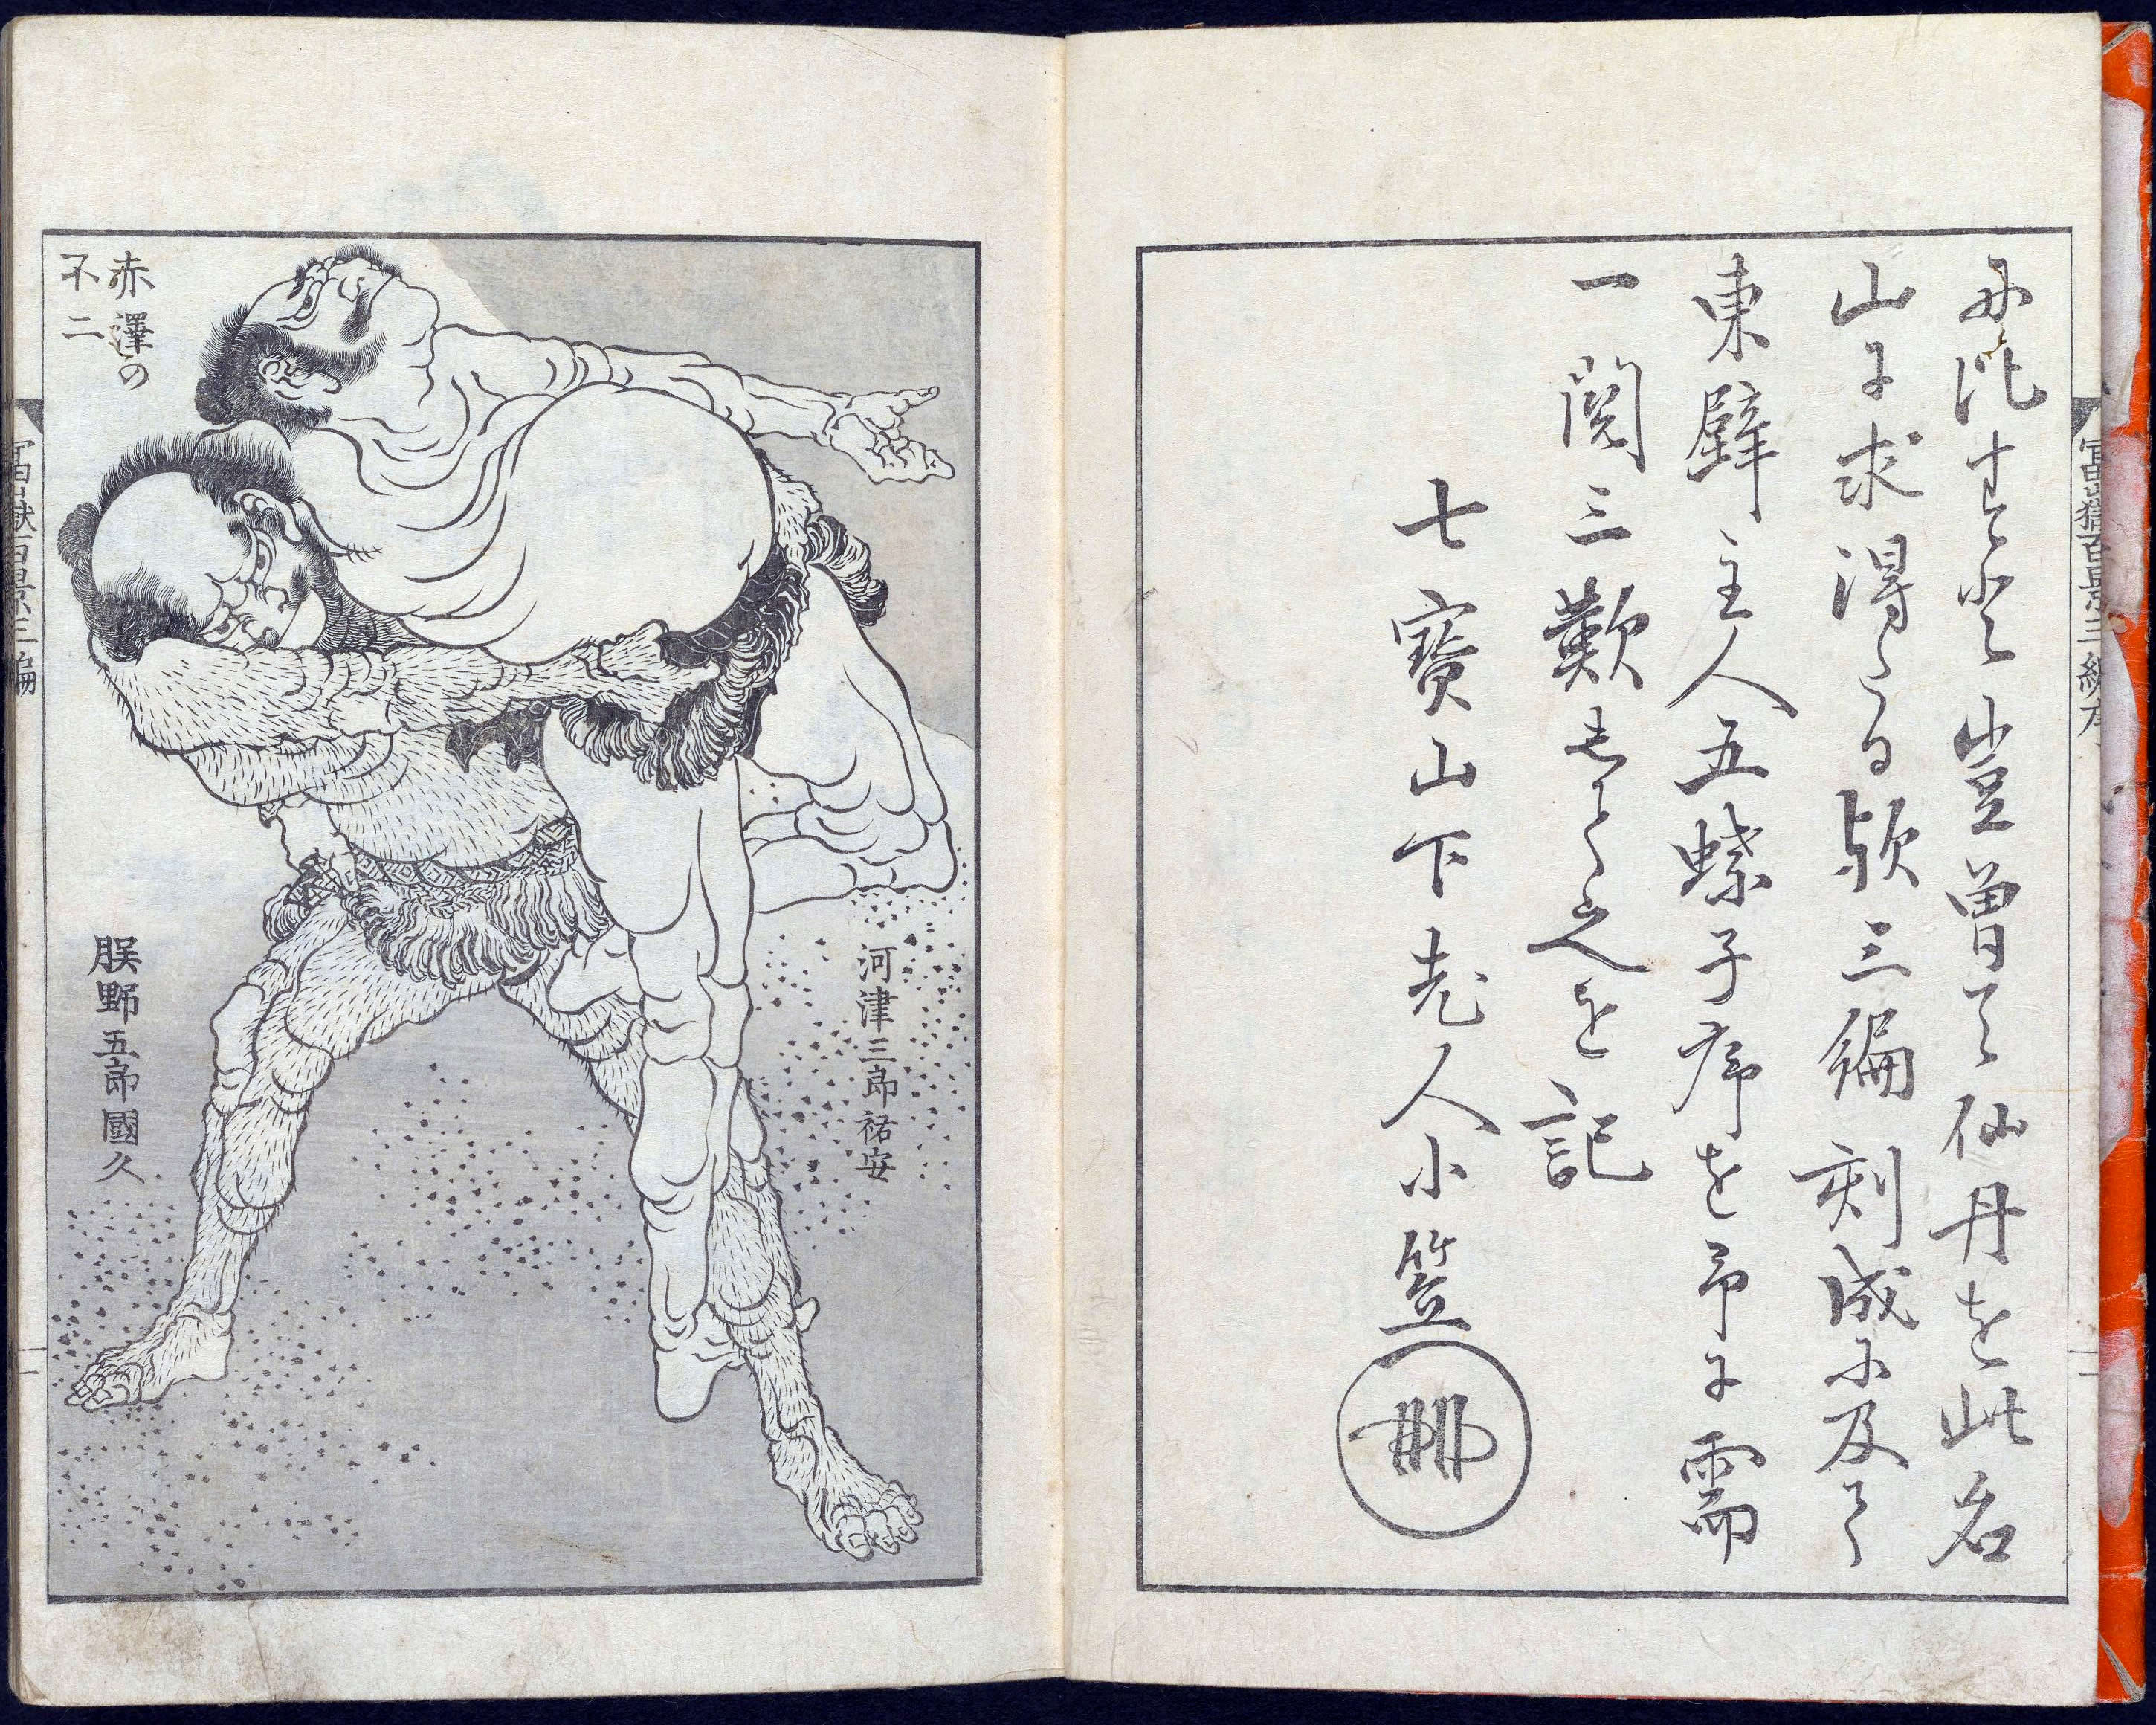 豈曽て仙丹を此名
山に求得たる歟三編刻成に及て
東壁主人五蝶子序を予に需
一閲三歎して之を記
七寳山下老人小笠
赤澤の
不二
河津三郎祐安
俣野五郎國久
富嶽百景三編